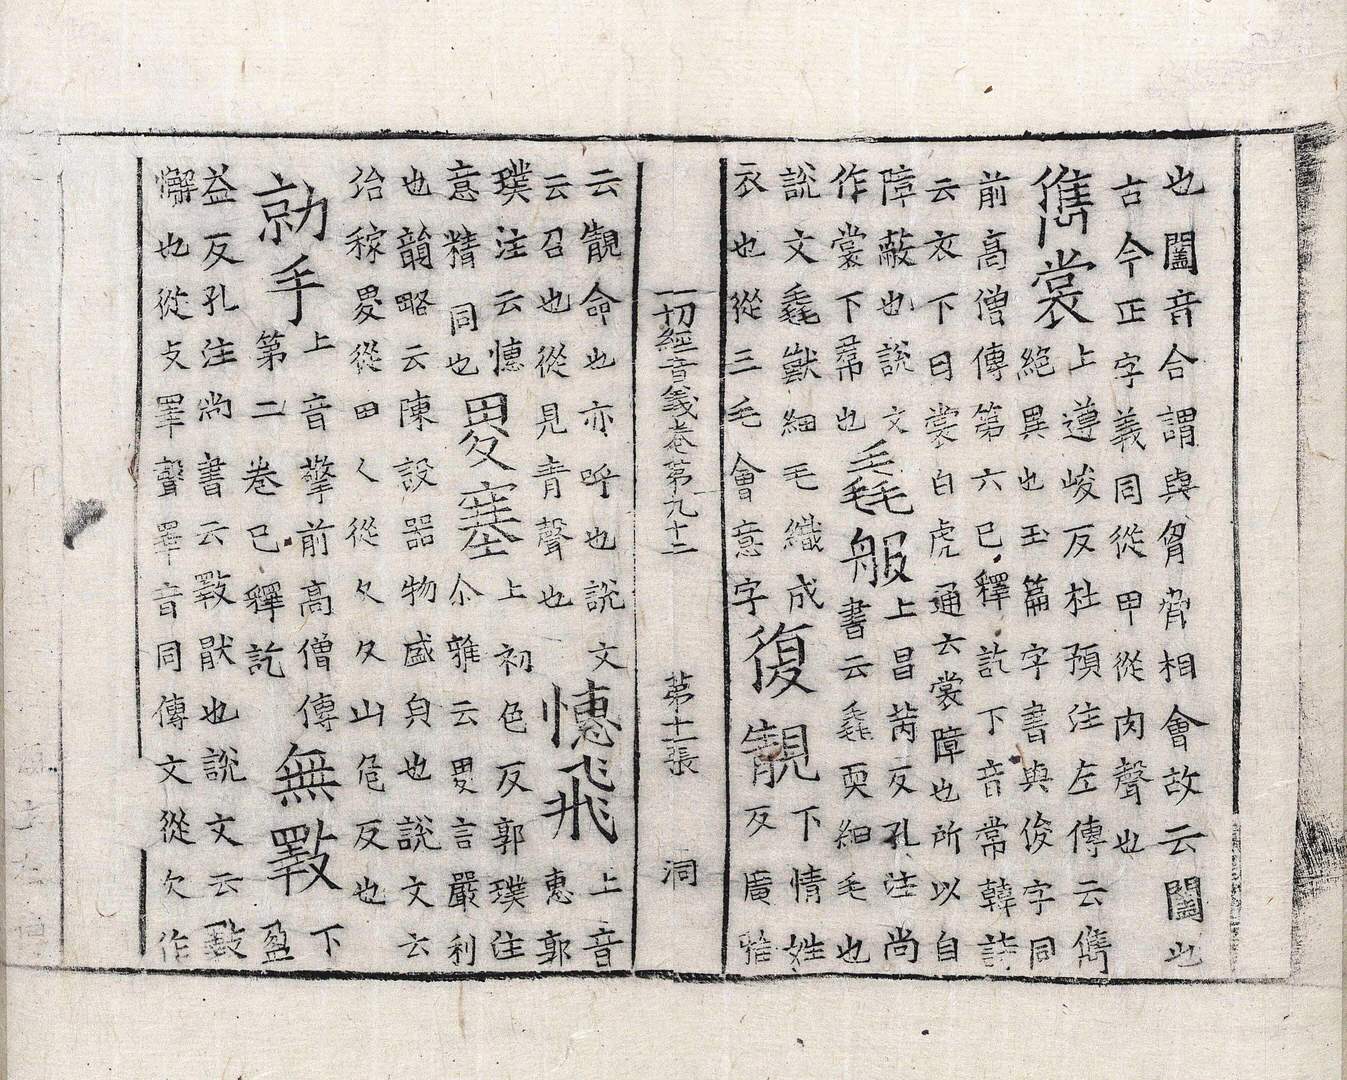 也闔音合謂與胷脅相會故云闔也
古今正字義同從甲從肉聲也
儁裳
上遵峻反杜預注左傳云儁
絕異也玉篇字書與俊字同
前高僧傳第六已釋訖下音常韓詩
云衣下曰裳白虎通云裳障也所以自
障蔽也說文
作裳下帬也
毳服
上昌芮反孔注尚
書云毳耎細毛也
說文毳獸細毛織成
衣也從三毛會意字
復靚
下情姓
反廣雅
一切經音義卷第九十二 第十一張 洞
云靚命也亦呼也說文
云召也從見青聲也
憓飛
上音
惠郭
璞注云憓
意精同也
畟塞
上初色反郭璞注
尒雅云畟言嚴利
也韻略云陳設器物盛皃也說文云
治稼畟從田人從夂夂山危反也
勍手
上音擎前高僧傳
第二卷已釋訖
無斁
下
盈
益反孔注尚書云斁猒也說文云斁
懈也從攴睪聲睪音同傳文從欠作